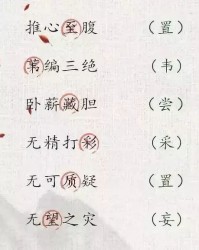 推心至腹 （置）
苇编三绝 （韦）
卧薪藏胆 （尝）
无精打彩 （采）
无可质疑 （置）
无望之灾 （妄）